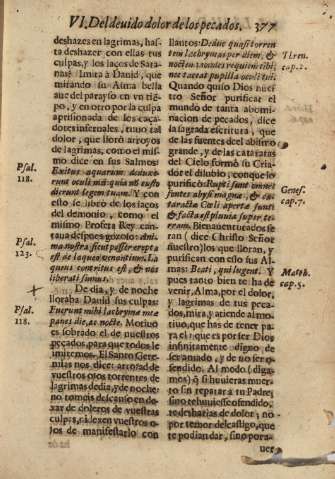 VI. Del deuido dolor de los pecados. 377
deshazes en lagrimas, has-
ta deshazer con ellas tus
culpas, y los laços de Sata-
nas? Imita à Dauid, que
mirando su Alma bella
aue del parayso en vn tiē-
po, y en otro por la culpa
aprisionada de los caça-
dores infernales, tuuo tal
dolor, que lloró arroyos
de lagrimas, como el mis-
mo dice en sus Salmos:
Exitus aquarum deduxe-
runt oculi mei: quia nō custo
dierunt legem tuam. Y con
esto se librò de los laços
del demonio, como el
mismo Profeta Rey can-
taua despues gozoso: Ani-
ma nostra sicut passer erepta
est de laqueo venantium. La
queus contritus est, & nos
liberati sumus.
De dia, y de noche
lloraba Dauid sus culpas:
Fuerunt mihi lachrymæ meæ
panes die, ac nocte. Motiuo
es sobrado el de nuestros
pecados, para que todos le
imitemos. El Santo Gere-
mias nos dice: arrojad de
vuestros ojos torrentes de
lagrimas de dia, y de noche:
no tomeis descanso en de-
xar de doleros de vuestras
culpas, ni dexen vuestros o-
jos de manifestarlo con
Psal.
118.
Psal.
123.
Psal.
118.
llantos: Deduc quasi torren
tem lachrymas per diem, &
noctem: non des requiem tibi:
nec taceat pupilla oculi tui.
Quando quiso Dios nues-
tro Señor purificar el
mundo de tanta abomi-
nacion de pecados, dice
la sagrada escritura, que
de las fuentes del abismo
grande, y de las cataratas
del Cielo formò su Cria-
dor el dilubio, con que lo
purificò: Rupti sunt omnes
fontes abyssi magnæ, & ca-
taractæ Cœli apertæ sunt:
& facta est pluuia super ter-
ram. Bienauenturados se-
ran (dice Christo Señor
nuestro) los que lloran, y
purifican con esso sus Al-
mas: Beati, qui lugent. Y
pues tanto bien te ha de
venir, Alma, por el dolor,
y lagrimas de tus peca-
dos, mira, y atiende al mo-
tiuo, que has de tener pa-
ra el: que es por ser Dios
infinitamente digno de
ser amado, y de no ser o-
fendido. Al modo (diga-
mos) q̃ si huuieras muer-
to sin reparar à tu Padre,
sino te huuiesse ofendido,
te desharias de dolor; no
por temor del castigo, que
te podian dar, sino pora-
uer
Thren.
cap. 2.
Genes.
cap. 7.
Matth.
cap. 5.